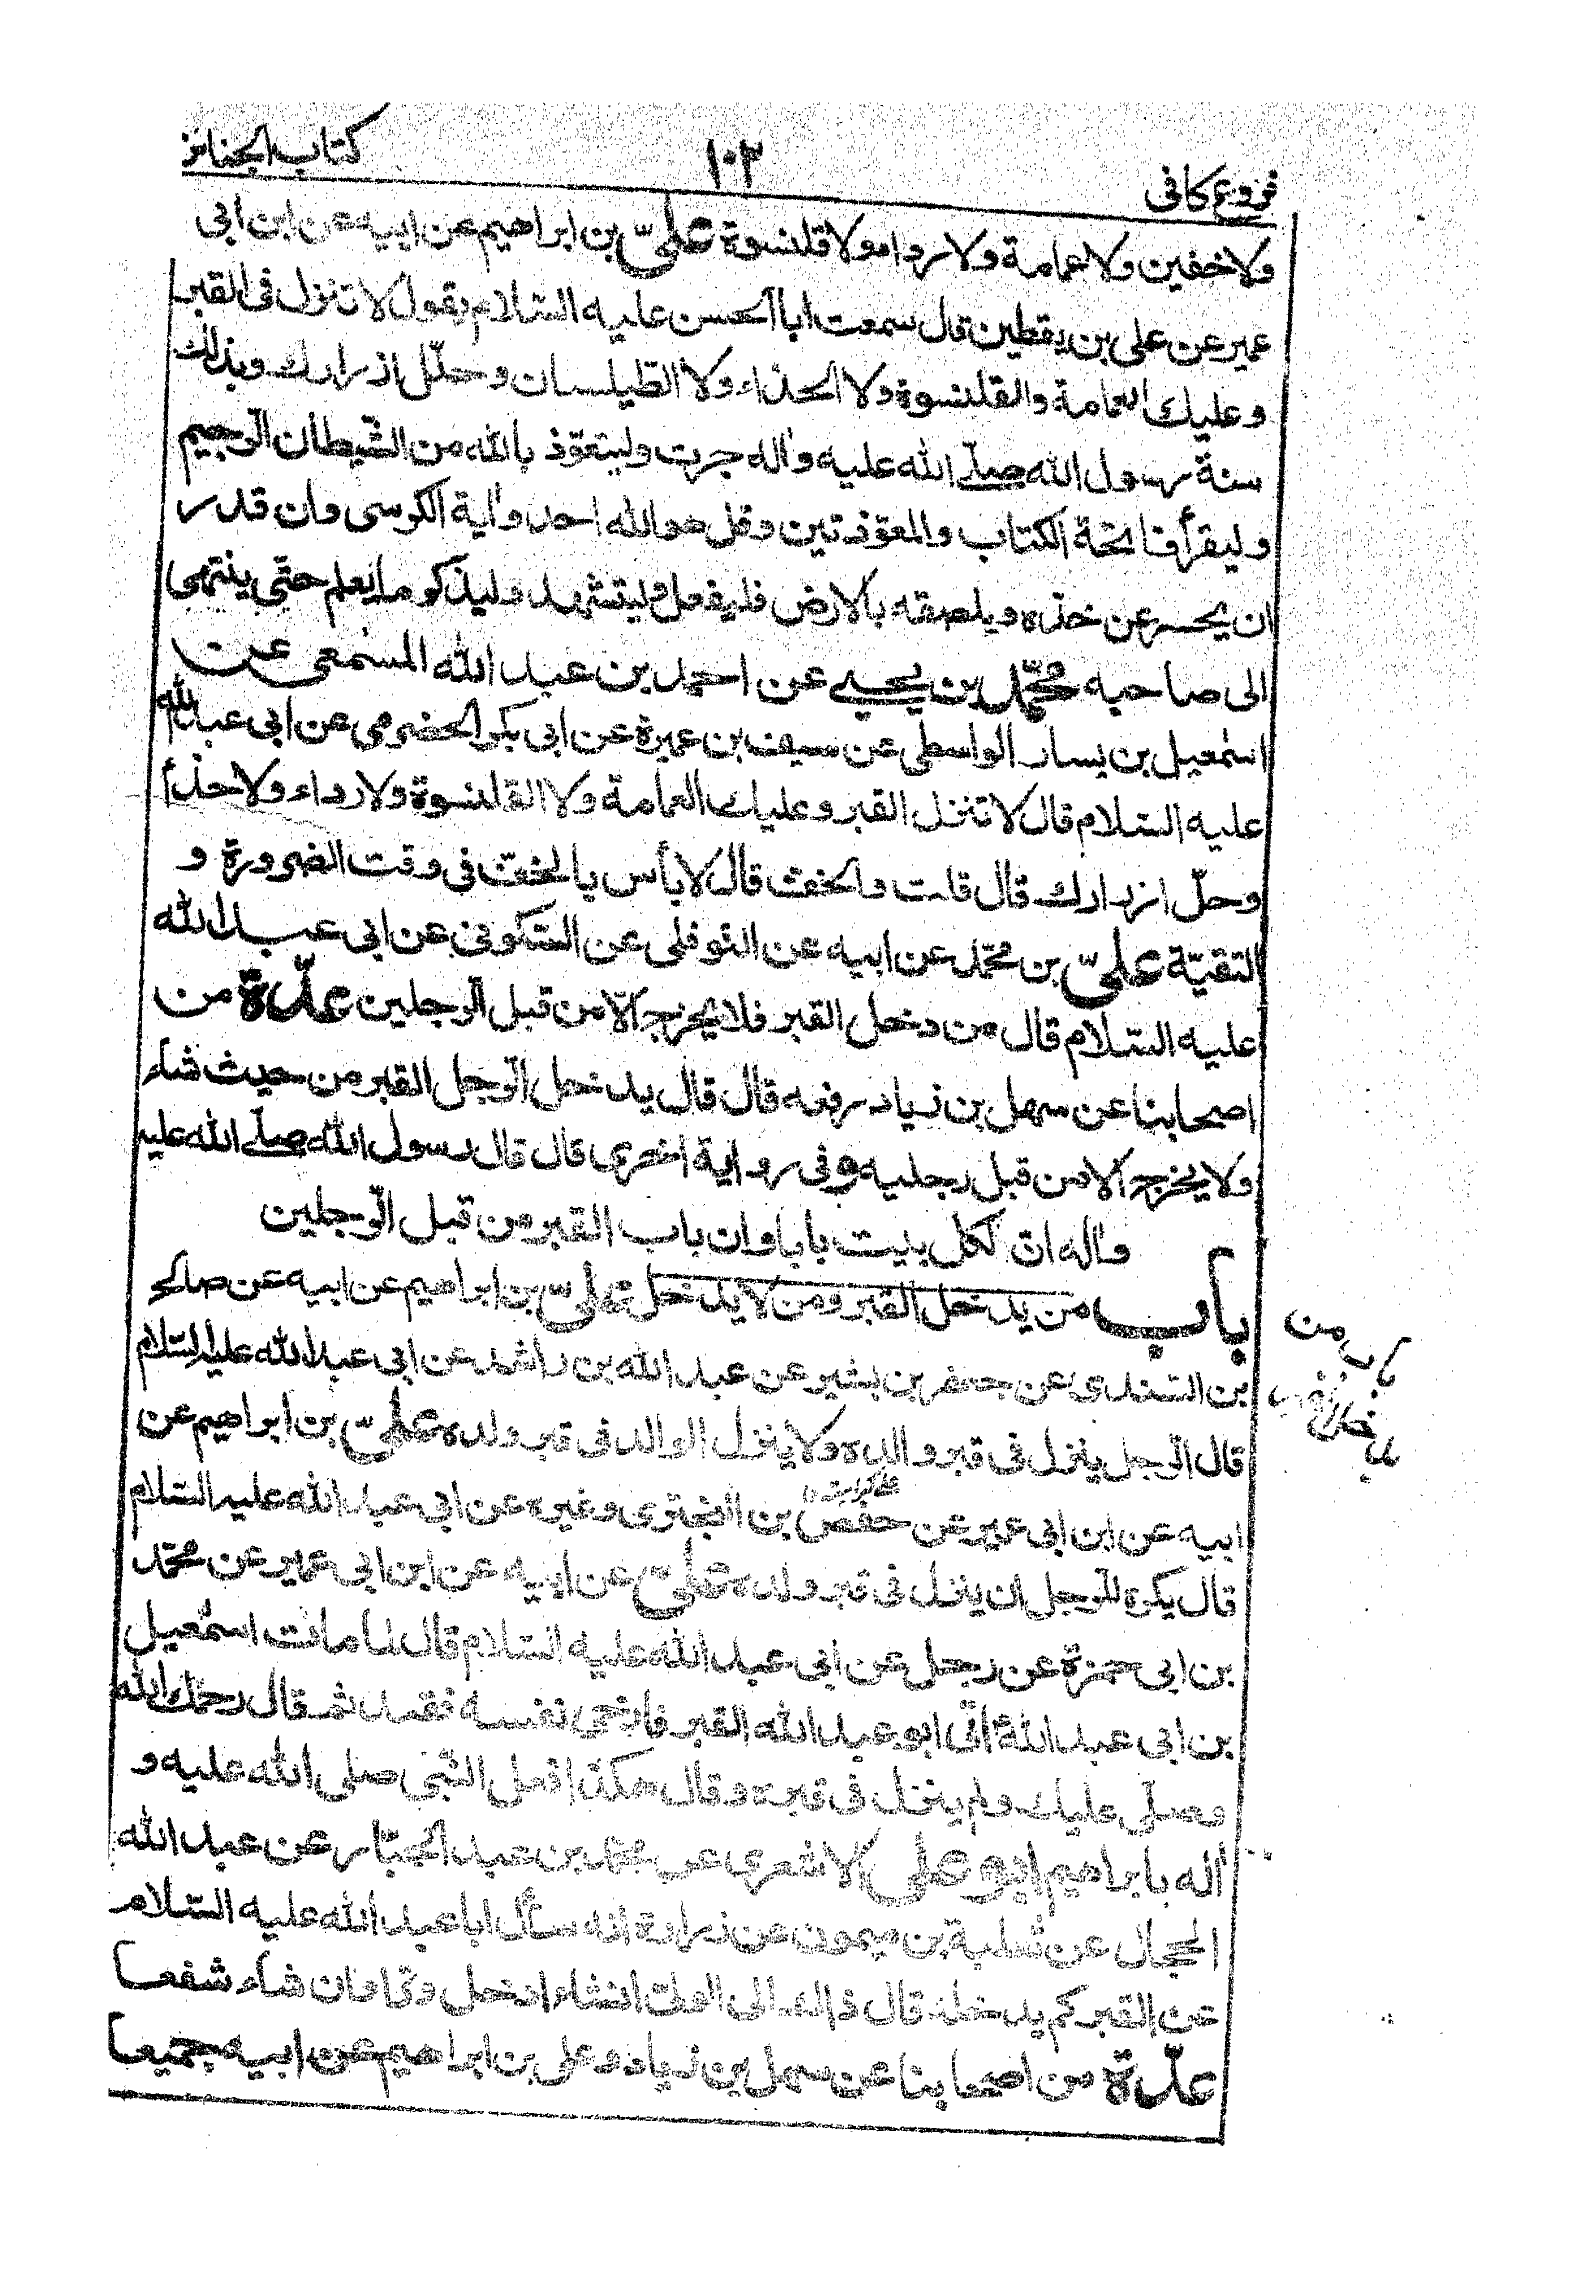 فروع كافى
١٠٢
كتاب الجنائز
ولا خفين ولا عمامة ولا رداء ولا قلنسوة علىّ بن ابراهيم عن ابيه عن ابن ابى
عمير عن على بن يقطين قال سمعت ابا الحسن عليه السّلام يقول لا تنزل فى القبر
وعليك العمامة والقلنسوة ولا الحذاء ولا الطيلسان وحلّل ازرارك وبذلك
سنة رسول الله صلّى الله عليه واٰله جرت وليتعوّذ بالله من الشّيطان الرّجيم
وليقرأ فاتحة الكتاب والمعوّذتين وقل هو الله احد واٰية الكرسى وان قدر
ان يحسر عن خدّه ويلصقه بالارض فليفعل وليتشهد وليذكر ما يعلم حتّى ينتهى
الى صاحبه محمّد بن يحيى عن احمد بن عبد الله المسمعى عن
اسمٰعيل بن يسار الواسطى عن سيف بن عميرة عن ابى بكر الحضرمى عن ابى عبد الله
عليه السّلام قال لا تنزل القبر وعليك العمامة ولا القلنسوة ولا رداء ولا حذأ
وحلّ ازرارك قال قلت والخفّ قال لا بأس بالخفّ فى وقت الضرورة و
التقيّة علىّ بن محمّد عن ابيه عن النّوفلى عن السّكونى عن ابى عبد الله
عليه السّلام قال من دخل القبر فلا يخرج الّا من قبل الرّجلين عدّة من
اصحابنا عن سهل بن زياد رفعه قال قال يدخل الرّجل القبر من حيث شاء
ولا يخرج الا من قبل رجليه وفى رواية اخرى قال قال رسول الله صلّى الله عليه
واٰله انّ لكل بيت بابا وان باب القبر من قبل الرّجلين
باب من يدخل القبر ومن لا يدخل علىّ بن ابراهيم عن ابيه عن صالح
بن السّندى عن جعفر بن بشير عن عبد الله بن راشد عن ابى عبد الله عليه السّلام
قال الرّجل ينزل فى قبر والده ولا ينزل الوالد فى قبر ولده علىّ بن ابراهيم عن
ابيه عن ابن ابى عمير عن حفص بن البخترى وغيره عن ابى عبد الله عليه السّلام
قال يكره للرّجل ان ينزل فى قبر ولده علىّ عن ابيه عن ابن ابى عمير عن محمّد
بن ابى حمزة عن رجل عن ابى عبد الله عليه السّلام قال لما مات اسمٰعيل
بن ابى عبد الله اتى ابو عبد الله القبر فارخى نفسه فقعد ثم قال رحمك الله
وصلّى عليك ولم ينزل فى قبره وقال هكذا فعل النّبى صلى الله عليه و
اٰله بابراهيم ابو على الاشعرى عن محمّد بن عبد الجبّار عن عبد الله
الحجال عن ثعلبة بن ميمون عن زرارة انه سأل ابا عبد الله عليه السّلام
عن القبر كم يدخله قال ذاك الى الولى ان شاء ادخل وترا وان شاء شفعا
عدّة من اصحابنا عن سهل بن زياد وعلى بن ابراهيم عن ابيه جميعا